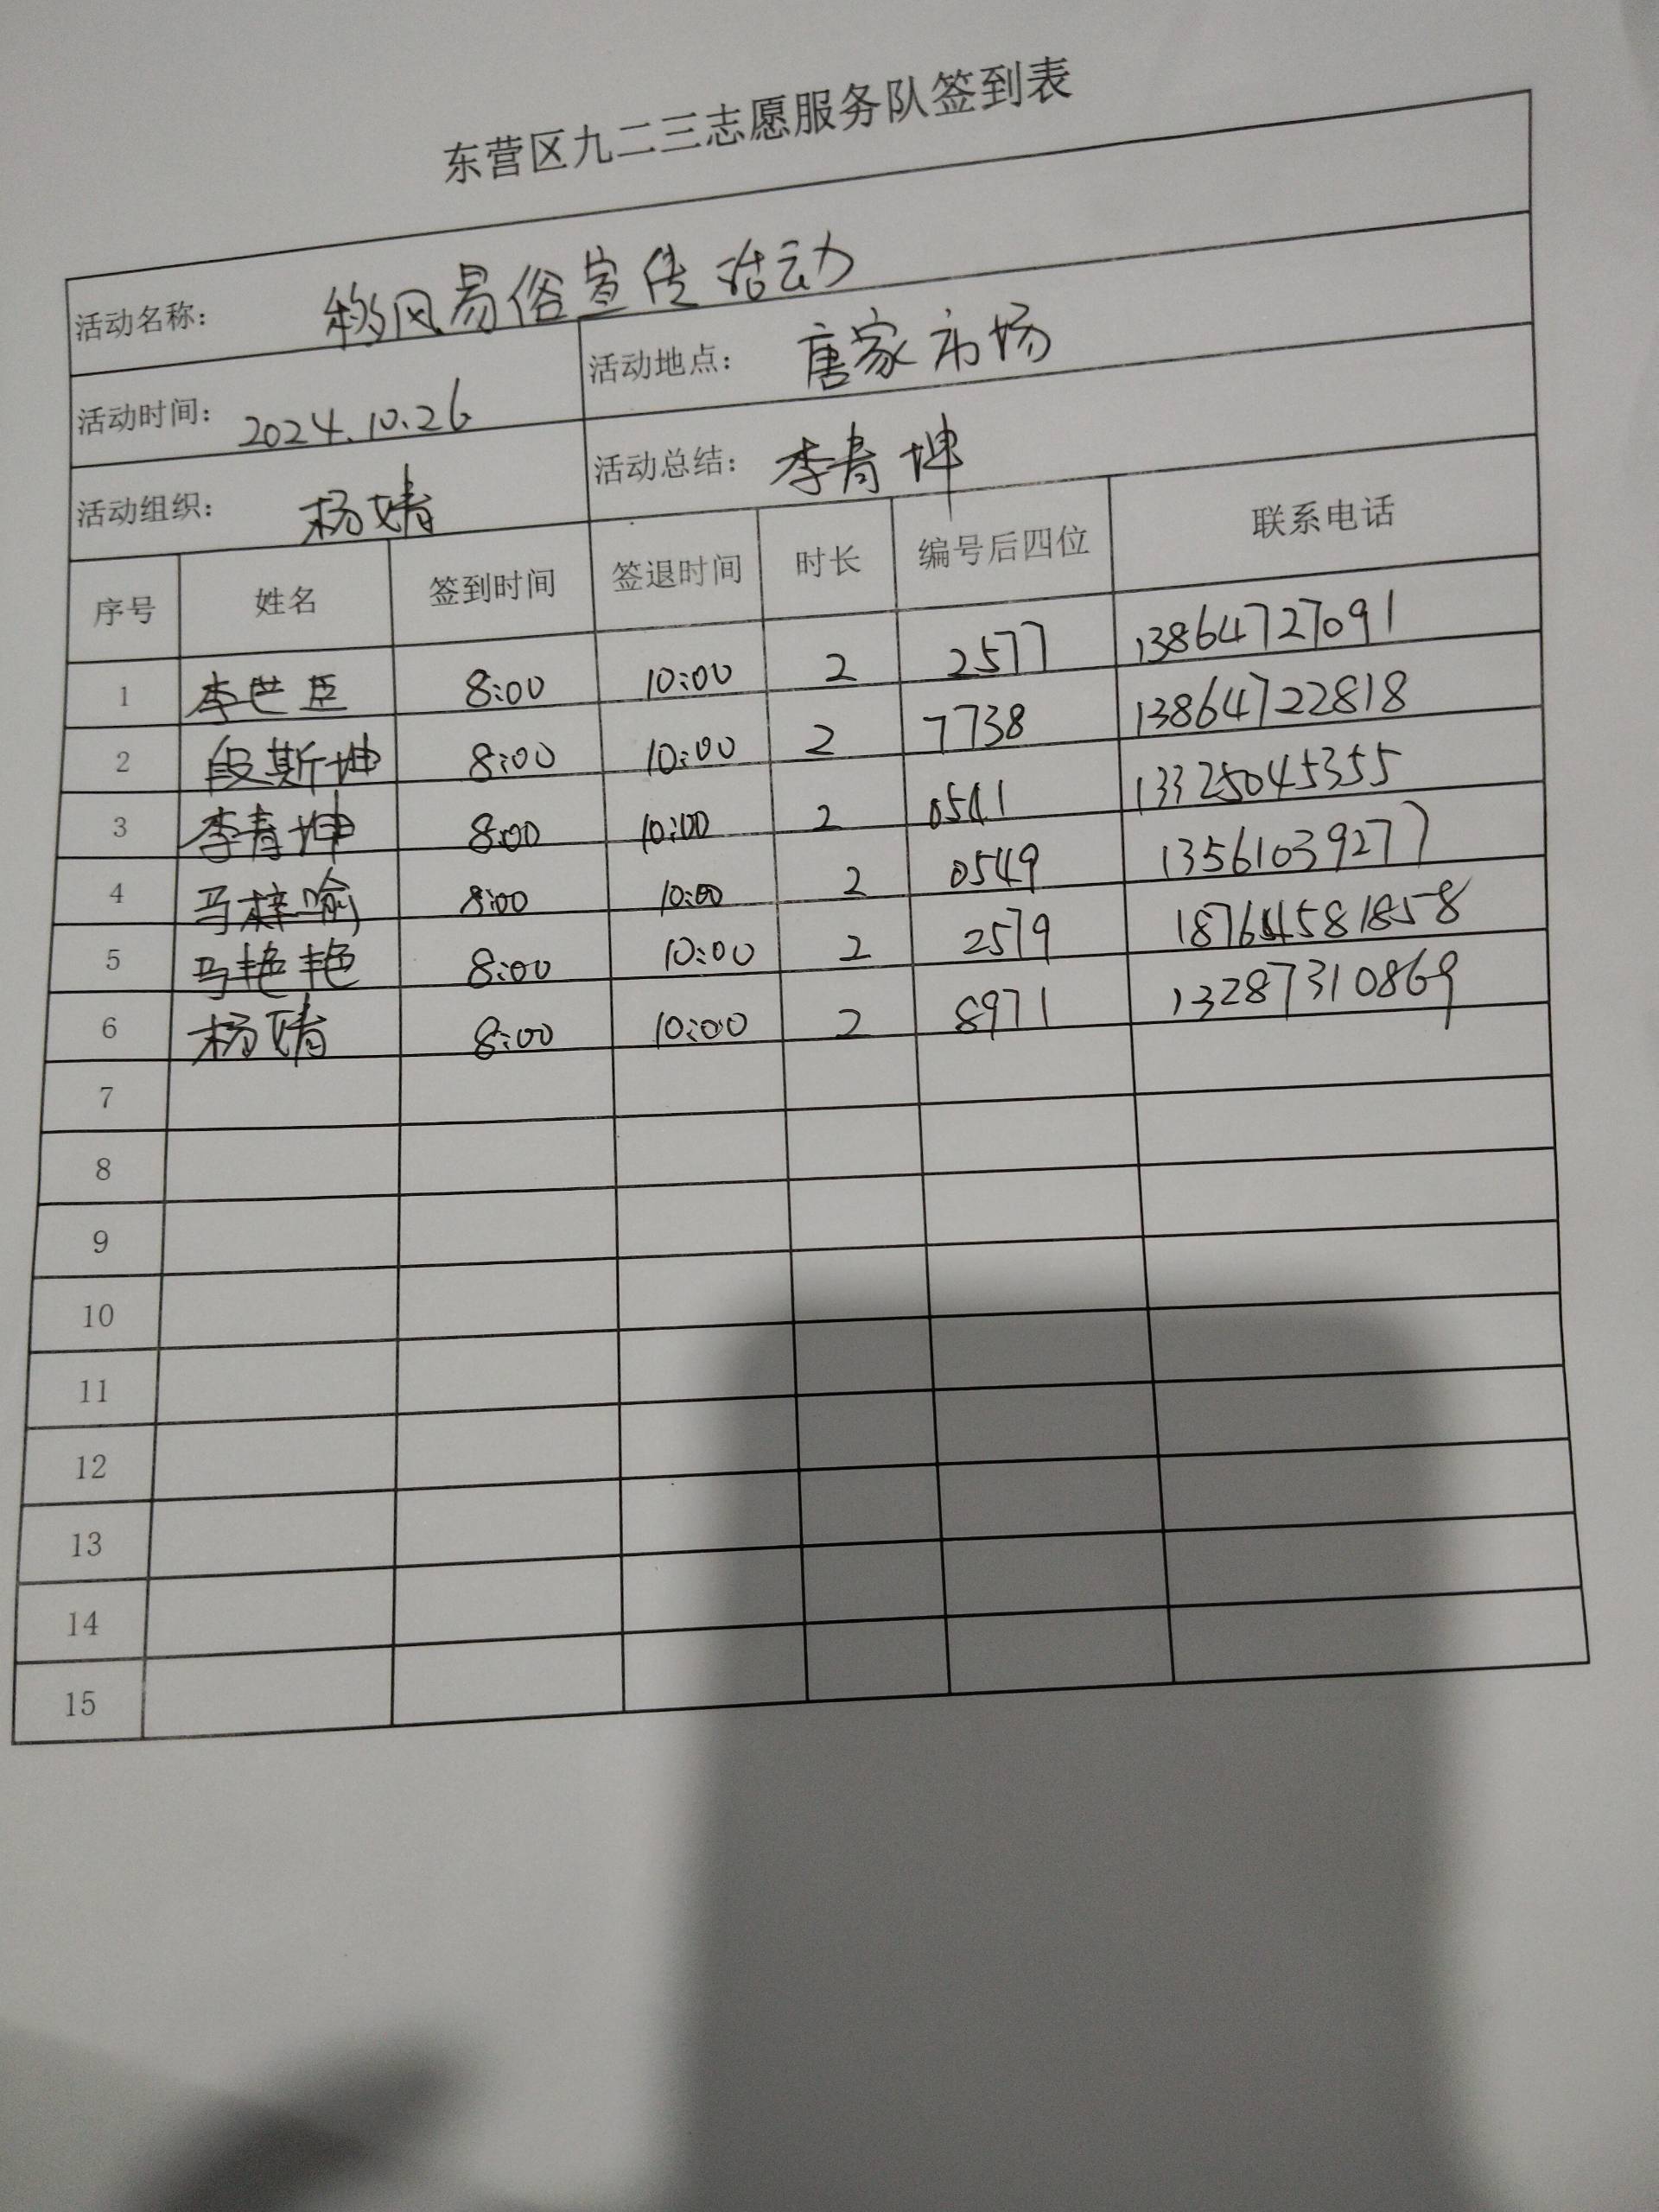 东营区九二三志愿服务队签到表
活动名称： 移风易俗宣传活动
活动时间： 2024.10.26 活动地点： 唐家市场
活动组织： 杨婧 活动总结： 李青坤
序号 姓名 签到时间 签退时间 时长 编号后四位 联系电话
1 李世臣 8:00 10:00 2 2577 13864727091
2 段斯坤 8:00 10:00 2 7738 13864722818
3 李青坤 8:00 10:00 2 0541 13325045355
4 马梓喻 8:00 10:00 2 0549 13561039277
5 马艳艳 8:00 10:00 2 2579 18764581858
6 杨婧 8:00 10:00 2 8971 13287310869
7
8
9
10
11
12
13
14
15